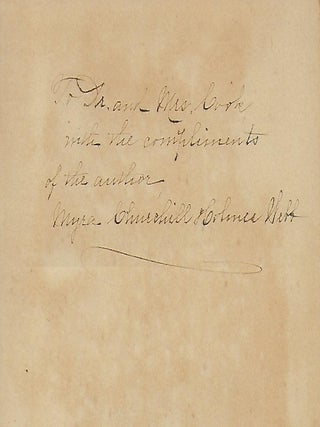 To Dr. and Mrs. Cook
with the compliments
of the author,
Myra Churchill Holmes Webb